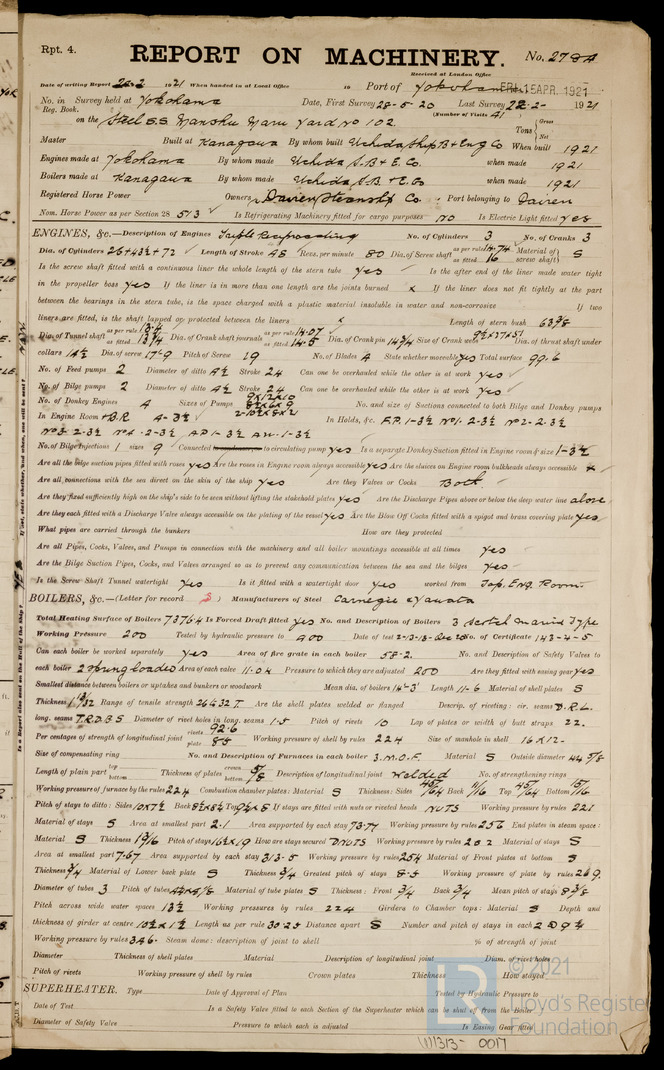 Rpt. 4.
REPORT ON MACHINERY.
No. 2784
Received at London Office
Date of writing Report 22.2 1921 When handed in at Local Office 10 Port of Yokohama 15 APR. 1921
No. in Survey held at Yokohama Date, First Survey 28-5-20 Last Survey 22-2- 1921
Reg. Book. (Number of Visits 41)
on the Steel S.S. Manshu Maru Yard No 102 Tons Gross Net
Master Built at Kanagawa By whom built Uchida Ship B & Eng Co When built 1921
Engines made at Yokohama By whom made Uchida S.B & E. Co. when made 1921
Boilers made at Kanagawa By whom made Uchida S.B & E. Co when made 1921
Registered Horse Power Owners Dairen Steamship Co. Port belonging to Dairen
Nom. Horse Power as per Section 28 513 Is Refrigerating Machinery fitted for cargo purposes No Is Electric Light fitted yes
ENGINES, &c.—Description of Engines Triple Reciprocating No. of Cylinders 3 No. of Cranks 3
Dia. of Cylinders 26+43½+72 Length of Stroke 48 Revs. per minute 80 Dia. of Screw shaft as per rule 14.74 as fitted 16 Material of screw shaft S
Is the screw shaft fitted with a continuous liner the whole length of the stern tube yes Is the after end of the liner made water tight
in the propeller boss yes If the liner is in more than one length are the joints burned x If the liner does not fit tightly at the part
between the bearings in the stern tube, is the space charged with a plastic material insoluble in water and non-corrosive If two
liners are fitted, is the shaft lapped or protected between the liners x Length of stern bush 63 3/8
Dia. of Tunnel shaft as per rule 13.4 as fitted 13¾ Dia. of Crank shaft journals as per rule 14.07 as fitted 14.5 Dia. of Crank pin 14¾ Size of Crank webs Dia. of thrust shaft under
collars 14½ Dia. of screw 17-9 Pitch of Screw 19 No. of Blades 4 State whether moveable yes Total surface 99.6
No. of Feed pumps 2 Diameter of ditto 4½ Stroke 24 Can one be overhauled while the other is at work yes
No. of Bilge pumps 2 Diameter of ditto 4½ Stroke 24 Can one be overhauled while the other is at work yes
No. of Donkey Engines 4 Sizes of Pumps 9x12x10 No. and size of Suctions connected to both Bilge and Donkey pumps
In Engine Room & B.R. 4-3½ In Holds, &c. F.P. 1-3½ No1. 2-3½ No2- 2-3½
No3- 2-3½ No4 - 2-3½ A.P 1-3½
No. of Bilge Injections 1 sizes 9 Connected to circulating pump yes Is a separate Donkey Suction fitted in Engine room & size 1-3½
Are all the bilge suction pipes fitted with roses yes Are the roses in Engine room always accessible yes Are the sluices on Engine room bulkheads always accessible
Are all connections with the sea direct on the skin of the ship yes Are they Valves or Cocks Both
Are they fixed sufficiently high on the ship's side to be seen without lifting the stokehold plates yes Are the Discharge Pipes above or below the deep water line above
Are they each fitted with a Discharge Valve always accessible on the plating of the vessel yes Are the Blow Off Cocks fitted with a spigot and brass covering plate yes
What pipes are carried through the bunkers How are they protected
Are all Pipes, Cocks, Valves, and Pumps in connection with the machinery and all boiler mountings accessible at all times yes
Are the Bilge Suction Pipes, Cocks, and Valves arranged so as to prevent any communication between the sea and the bilges yes
Is the Screw Shaft Tunnel watertight yes Is it fitted with a watertight door yes worked from Top. Eng. Room
BOILERS, &c.—(Letter for record S) Manufacturers of Steel Carnegie & Yawata
Total Heating Surface of Boilers 7376 4 Is Forced Draft fitted yes No. and Description of Boilers 3 Scotch Marine Type
Working Pressure 200 Tested by hydraulic pressure to 400 Date of test No. of Certificate 143-4-5
Can each boiler be worked separately yes Area of fire grate in each boiler 58.2 No. and Description of Safety Valves to
each boiler 2 spring loaded Area of each valve 11.04 Pressure to which they are adjusted 200 Are they fitted with easing gear yes
Smallest distance between boilers or uptakes and bunkers or woodwork Mean dia. of boilers 14-3 Length 11-6 Material of shell plates S
Thickness 1 13/32 Range of tensile strength 26 & 32 T. Are the shell plates welded or flanged Descrip. of riveting: cir. seams D.R.L.
long. seams T.R.D.B.S Diameter of rivet holes in long. seams 1.5 Pitch of rivets 10 Lap of plates or width of butt straps 22.
Per centages of strength of longitudinal joint rivets 92.6 plate 85 Working pressure of shell by rules 224 Size of manhole in shell 16x12-
Size of compensating ring No. and Description of Furnaces in each boiler 3. M.O.F. Material S Outside diameter 44 5/8
Length of plain part top bottom Thickness of plates crown bottom 5/8 Description of longitudinal joint welded No. of strengthening rings
Working pressure of furnace by the rules 224 Combustion chamber plates: Material S Thickness: Sides 45/64 Back 11/16 Top 45/64 Bottom 15/16
Pitch of stays to ditto: Sides 10x7½ Back 8½x8½ Top 9½x8 If stays are fitted with nuts or riveted heads NUTS Working pressure by rules 221
Material of stays S Area at smallest part 2.1 Area supported by each stay 73.77 Working pressure by rules 256 End plates in steam space:
Material S Thickness 1 9/16 Pitch of stays 16½x19 How are stays secured D NUTS Working pressure by rules 202 Material of stays S
Area at smallest part 7.67 Area supported by each stay 313.5 Working pressure by rules 254 Material of Front plates at bottom S
Thickness ¾ Material of Lower back plate S Thickness ¾ Greatest pitch of stays 8.5 Working pressure of plate by rules 269.
Diameter of tubes 3 Pitch of tubes Material of tube plates S Thickness: Front ¾ Back ¾ Mean pitch of stays 8 3/8
Pitch across wide water spaces 13½ Working pressures by rules 224 Girders to Chamber tops: Material S Depth and
thickness of girder at centre 10½x1½ Length as per rule 30.25 Distance apart S Number and pitch of stays in each 2 @ 9½
Working pressure by rules 346. Steam dome: description of joint to shell % of strength of joint
Diameter Thickness of shell plates Material Description of longitudinal joint Diam. of rivet holes
Pitch of rivets Working pressure of shell by rules Crown plates Thickness How stayed
SUPERHEATER. Type Date of Approval of Plan Tested by Hydraulic Pressure to
Date of Test Is a Safety Valve fitted to each Section of the Superheater which can be shut off from the Boiler
Diameter of Safety Valve Pressure to which each is adjusted Is Easing Gear fitted
© 2021
Lloyd's Register
Foundation
0017